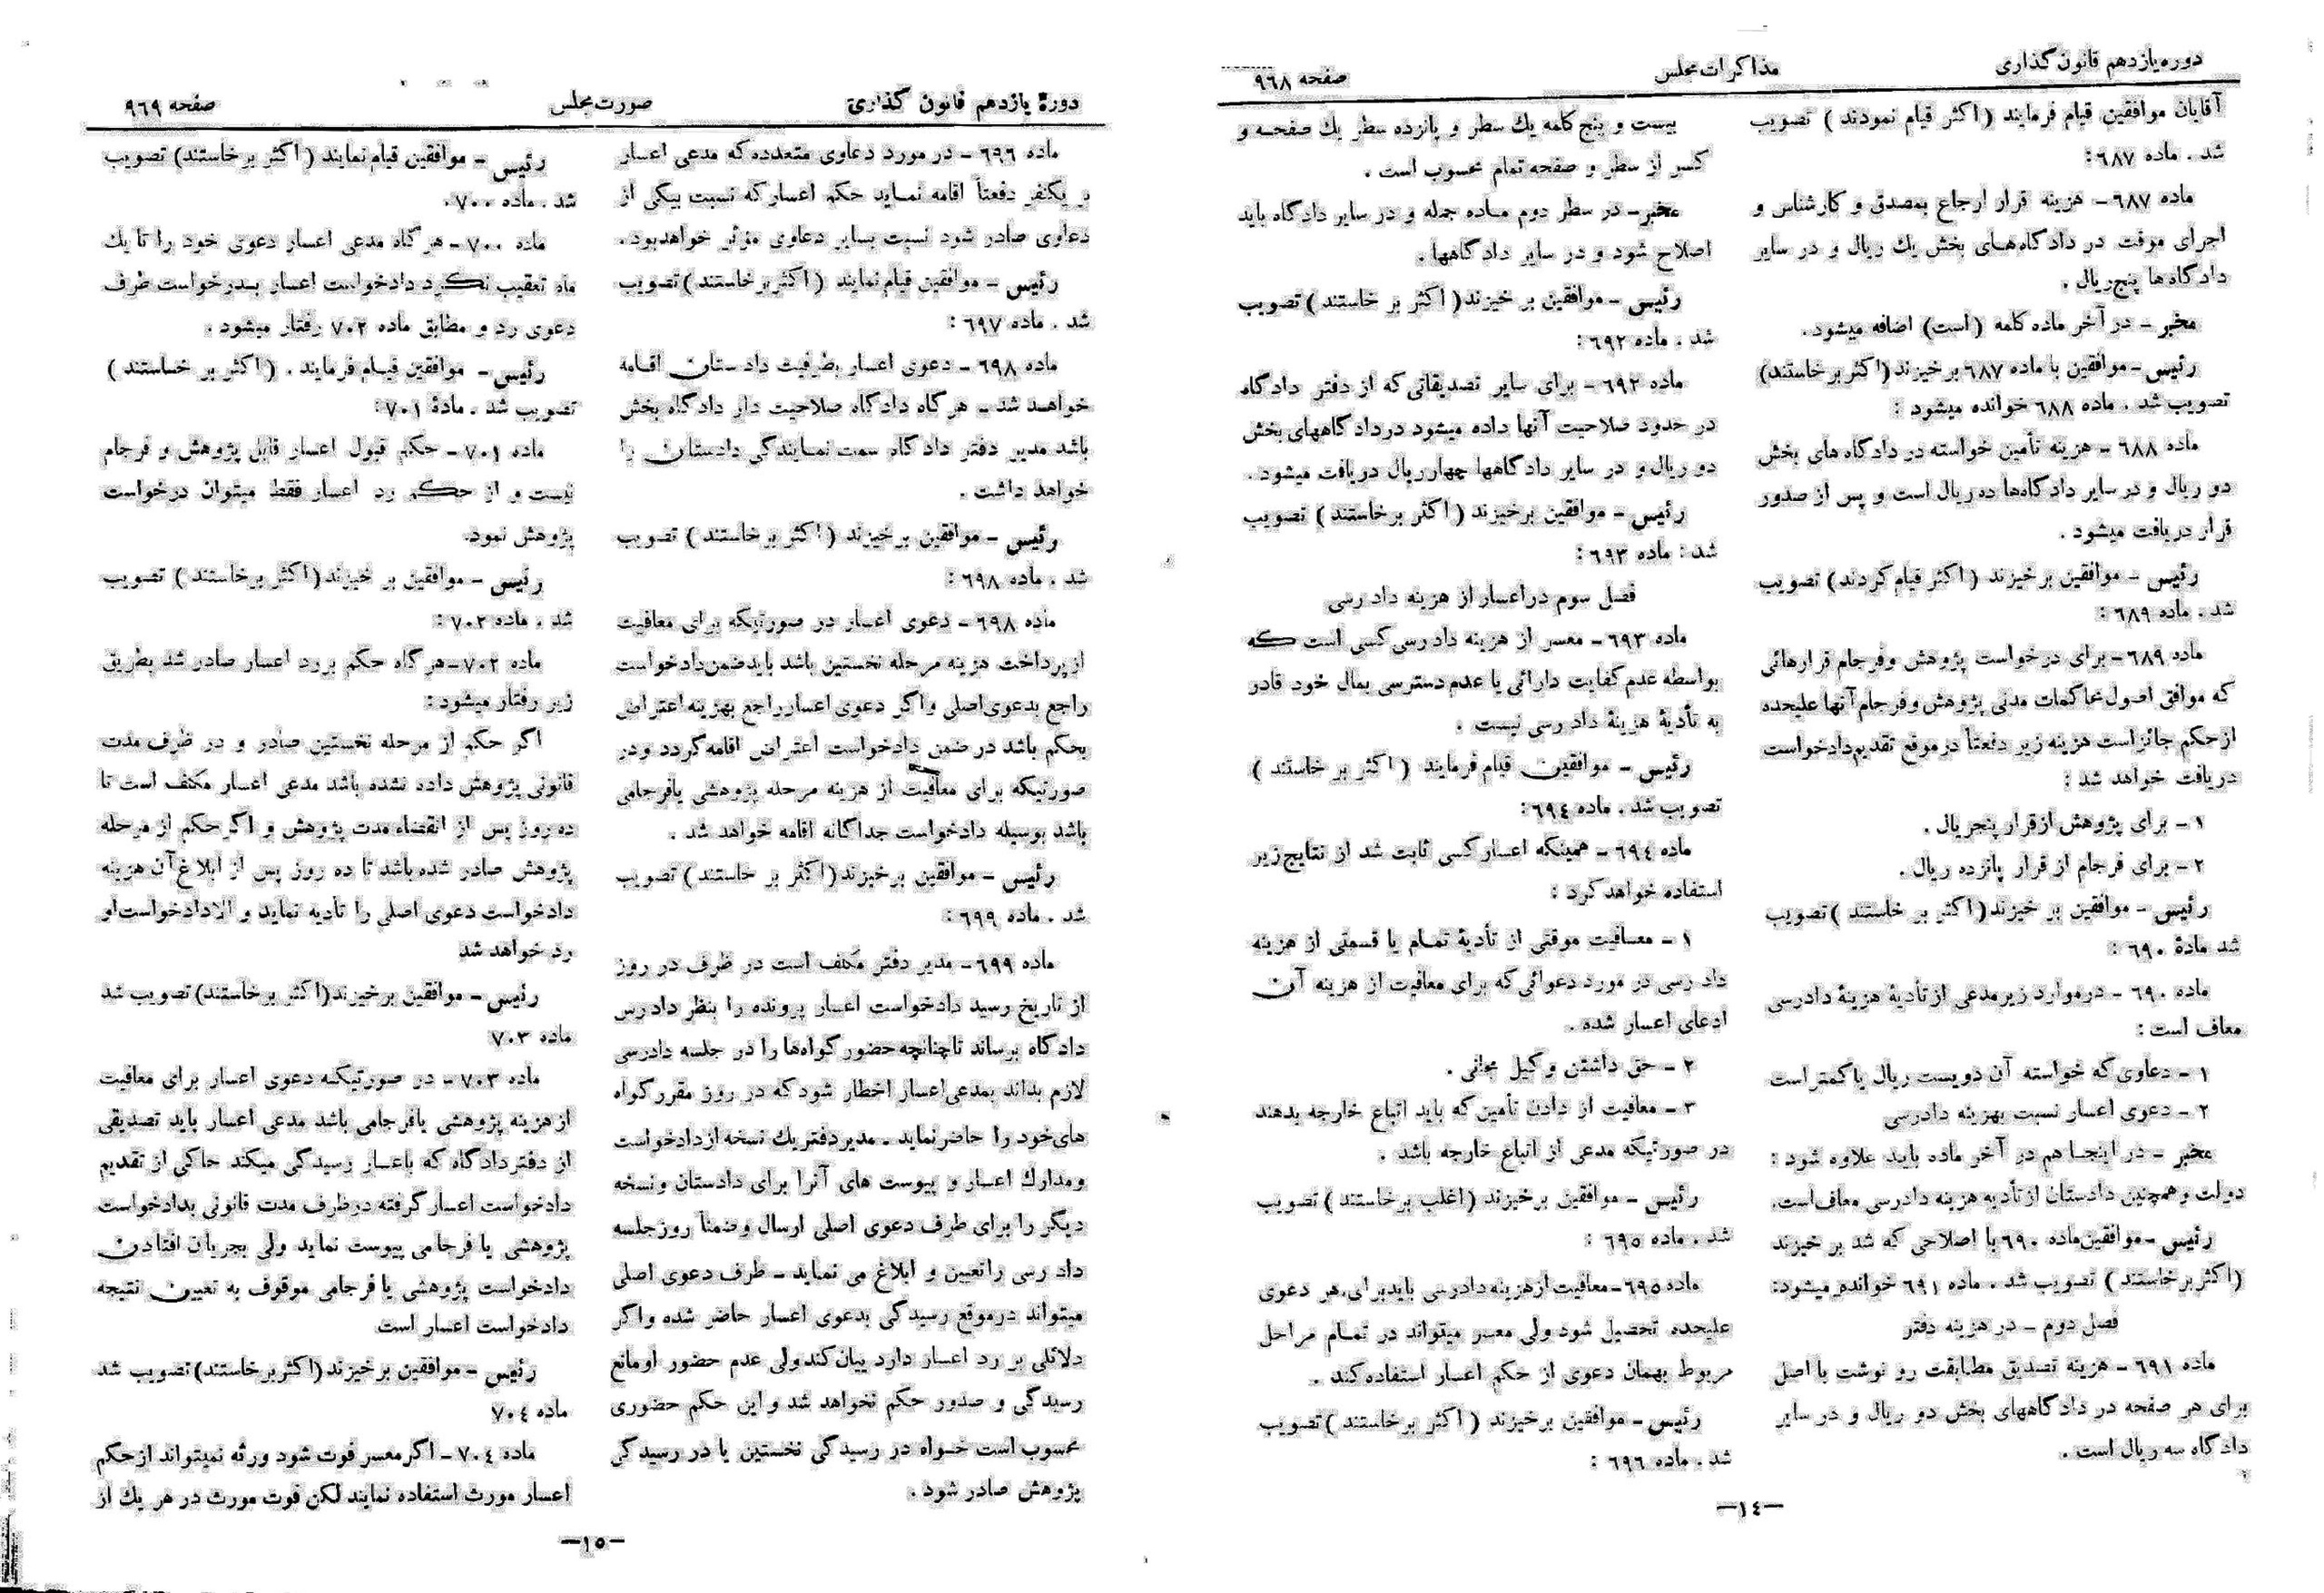 دوره یازدهم قانون گذاری
مذاکرات مجلس
صفحه ۹٦۸
آقایان موافقین قیام فرمایند (اکثر قیام نمودند) تصویب
شد . ماده ٦۸۷:
ماده ٦۸۷- هزینه قرار ارجاع بمصدق و کارشناس و
اجرای موقت در دادگاه‌های بخش یك ریال و در سایر
دادگاه ها پنج ریال .
مخبر - در آخر ماده کلمه (است) اضافه میشود.
رئیس - موافقین با ماده ٦۸۷ برخیزند (اکثر برخاستند)
تصویب شد . ماده ٦۸۸ خوانده میشود :
ماده ٦۸۸ - هزینه تأمین خواسته در دادگاه های بخش
دو ریال و در سایر دادگاه‌ها ده ریال است و پس از صدور
قرار دریافت میشود .
رئیس - موافقین برخیزند (اکثر قیام کردند) تصویب
شد . ماده ٦۸۹ :
ماده ٦۸۹ - برای درخواست پژوهش و فرجام قرارهائی
که موافق اصول محاکمات مدنی پژوهش و فرجام آنها علیحده
از حکم جائز است هزینه زیر دفعتاً در موقع تقدیم دادخواست
دریافت خواهد شد :
۱ - برای پژوهش از قرار پنجریال .
۲ - برای فرجام از قرار پانزده ریال .
رئیس - موافقین بر خیزند (اکثر بر خاستند) تصویب
شد مادهٔ ٦۹۰ :
ماده ٦۹۰ - در موارد زیر مدعی از تأدیهٔ هزینهٔ دادرسی
معاف است :
۱ - دعاوی که خواسته آن دویست ریال یا کمتر است
۲ - دعوی اعسار نسبت بهزینه دادرسی
مخبر - در اینجا هم در آخر ماده باید علاوه شود :
دولت و همچنین دادستان از تأدیه هزینه دادرسی معاف است.
رئیس - موافقین ماده ٦۹۰ با اصلاحی که شد بر خیزند
(اکثر برخاستند) تصویب شد . ماده ٦۹۱ خوانده میشود:
فصل دوم - در هزینه دفتر
ماده ٦۹۱ - هزینه تصدیق مطابقت رو نوشت با اصل
برای هر صفحه در دادگاههای بخش دو ریال و در سایر
دادگاه سه ریال است .
بیست و پنج کلمه یك سطر و پانزده سطر یك صفحه و
کسر از سطر و صفحه تمام محسوب است .
مخبر - در سطر دوم ماده جمله و در سایر دادگاه باید
اصلاح شود و در سایر دادگاهها .
رئیس - موافقین بر خیزند (اکثر بر خاستند) تصویب
شد . ماده ٦۹۲ :
ماده ٦۹۲ - برای سایر تصدیقاتی که از دفتر دادگاه
در حدود صلاحیت آنها داده میشود در دادگاههای بخش
دو ریال و در سایر دادگاهها چهار ریال دریافت میشود.
رئیس - موافقین برخیزند (اکثر برخاستند) تصویب
شد : ماده ٦۹۳ :
فصل سوم در اعسار از هزینه داد رسی
ماده ٦۹۳ - معسر از هزینه دادرسی کسی است که
بواسطه عدم کفایت دارائی یا عدم دسترسی بمال خود قادر
به تأدیهٔ هزینهٔ داد رسی نیست .
رئیس - موافقین قیام فرمایند (اکثر بر خاستند)
تصویب شد . ماده ٦۹٤:
ماده ٦۹٤ - همینکه اعسار کسی ثابت شد از نتایج زیر
استفاده خواهد کرد :
۱ - معافیت موقتی از تأدیهٔ تمام یا قسمتی از هزینه
داد رسی در مورد دعوائی که برای معافیت از هزینه آن
ادعای اعسار شده .
۲ - حق داشتن وکیل مجانی .
۳ - معافیت از دادن تأمین که باید اتباع خارجه بدهند
در صورتیکه مدعی از اتباع خارجه باشد .
رئیس - موافقین برخیزند (اغلب برخاستند) تصویب
شد . ماده ٦۹٥ :
ماده ٦۹٥ - معافیت از هزینه دادرسی باید برای هر دعوی
علیحده تحصیل شود ولی معسر میتواند در تمام مراحل
مربوط بهمان دعوی از حکم اعسار استفاده کند .
رئیس - موافقین برخیزند (اکثر برخاستند) تصویب
شد . ماده ٦۹٦ :
-۱٤-
دورهٔ یازدهم قانون گذاری
صورت مجلس
صفحه ۹٦۹
ماده ٦۹٦ - در مورد دعاوی متعدده که مدعی اعسار
بر یکنفر دفعتاً اقامه نماید حکم اعسار که نسبت بیکی از
دعاوی صادر شود نسبت بسایر دعاوی مؤثر خواهد بود.
رئیس - موافقین قیام نمایند (اکثر برخاستند) تصویب
شد . ماده ٦۹۷ :
ماده ٦۹۸ - دعوی اعسار بطرفیت دادستان اقامه
خواهد شد - هر گاه دادگاه صلاحیت دار دادگاه بخش
باشد مدیر دفتر دادگاه سمت نمایندگی دادستان را
خواهد داشت .
رئیس - موافقین بر خیزند (اکثر برخاستند) تصویب
شد . ماده ٦۹۸ :
ماده ٦۹۸ - دعوی اعسار در صورتیکه برای معافیت
از پرداخت هزینه مرحله نخستین باشد باید ضمن دادخواست
راجع بدعوی اصلی و اگر دعوی اعسار راجع بهزینه اعتراض
بحکم باشد در ضمن دادخواست اعتراض اقامه گردد و در
صورتیکه برای معافیت از هزینه مرحله پژوهشی یا فرجامی
باشد بوسیله دادخواست جداگانه اقامه خواهد شد .
رئیس - موافقین برخیزند (اکثر بر خاستند) تصویب
شد . ماده ٦۹۹ :
ماده ٦۹۹ - مدیر دفتر مکلف است در ظرف دو روز
از تاریخ رسید دادخواست اعسار پرونده را بنظر دادرس
دادگاه برساند تا چنانچه حضور گواه‌ها را در جلسه دادرسی
لازم بداند بمدعی اعسار اخطار شود که در روز مقرر گواه
های خود را حاضر نماید . مدیر دفتر یك نسخه از دادخواست
و مدارك اعسار و پیوست های آنرا برای دادستان و نسخه
دیگر را برای طرف دعوی اصلی ارسال و ضمناً روز جلسه
داد رسی را تعیین و ابلاغ می نماید - طرف دعوی اصلی
میتواند در موقع رسیدگی بدعوی اعسار حاضر شده و اگر
دلائلی بر رد اعسار دارد بیان کند ولی عدم حضور او مانع
رسیدگی و صدور حکم نخواهد شد و این حکم حضوری
محسوب است خواه در رسیدگی نخستین یا در رسیدگی
پژوهش صادر شود .
رئیس - موافقین قیام نمایند (اکثر بر خاستند) تصویب
شد . ماده ۷۰۰ .
ماده ۷۰۰ - هر گاه مدعی اعسار دعوی خود را تا یك
ماه تعقیب نکرد دادخواست اعسار بدرخواست طرف
دعوی رد و مطابق ماده ۷۰۲ رفتار میشود .
رئیس - موافقین قیام فرمایند . (اکثر بر خاستند)
تصویب شد . مادهٔ ۷۰۱ :
ماده ۷۰۱ - حکم قبول اعسار قابل پژوهش و فرجام
نیست و از حکم رد اعسار فقط میتوان درخواست
پژوهش نمود.
رئیس - موافقین بر خیزند (اکثر برخاستند) تصویب
شد . ماده ۷۰۲ :
ماده ۷۰۲ - هر گاه حکم برد اعسار صادر شد بطریق
زیر رفتار میشود :
اگر حکم از مرحله نخستین صادر و در ظرف مدت
قانونی پژوهش داده نشده باشد مدعی اعسار مکلف است تا
ده روز پس از انقضاء مدت پژوهش و اگر حکم از مرحله
پژوهش صادر شده باشد تا ده روز پس از ابلاغ آن هزینه
دادخواست دعوی اصلی را تأدیه نماید و الا دادخواست او
رد خواهد شد
رئیس - موافقین برخیزند (اکثر برخاستند) تصویب شد
ماده ۷۰۳
ماده ۷۰۳ - در صورتیکه دعوی اعسار برای معافیت
از هزینه پژوهشی یا فرجامی باشد مدعی اعسار باید تصدیقی
از دفتر دادگاه که باعسار رسیدگی میکند حاکی از تقدیم
دادخواست اعسار گرفته در ظرف مدت قانونی بدادخواست
پژوهشی یا فرجامی پیوست نماید ولی بجریان افتادن
دادخواست پژوهشی یا فرجامی موقوف به تعیین نتیجه
دادخواست اعسار است
رئیس - موافقین برخیزند (اکثر برخاستند) تصویب شد
ماده ۷۰٤
ماده ۷۰٤ - اگر معسر فوت شود ورثه نمیتواند از حکم
اعسار مورث استفاده نمایند لکن فوت مورث در هر یك از
-۱٥-